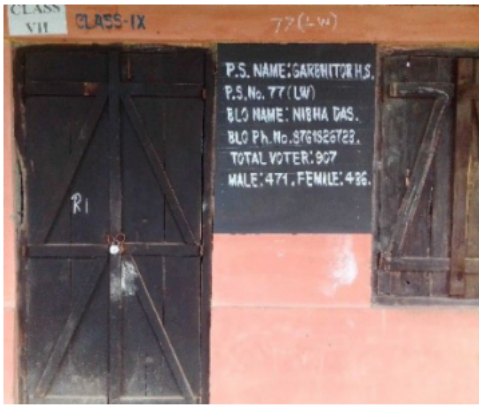 CLASS
VII
CLASS-IX
77(LW)
P.S. NAME: GARBHITOR H.S.
P.S.No. 77(LW)
BLO NAME: NIBHA DAS.
BLO Ph.No. 8761826723.
TOTAL VOTER: 907
MALE: 471, FEMILE: 436.
R1